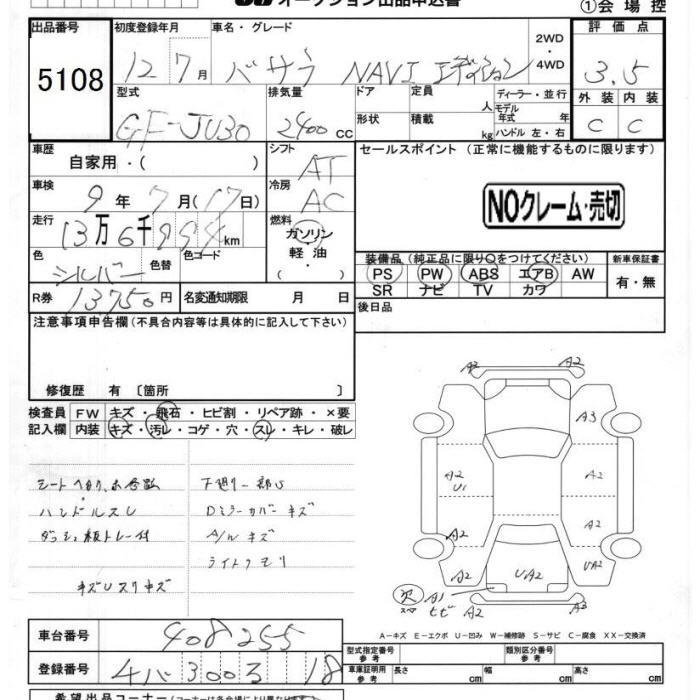 オークション出品申込書 ①会場控
出品番号 初度登録年月 車名・グレード 2WD・4WD 評価点
5108 12 7月 バサラ NAVI エディション 3.5
型式 排気量 ドア 定員 人 ディーラー・並行 外装 内装
GF-JU30 2400cc 形状 積載 kg モデル年式 年式 ハンドル 左・右 C C
車歴 自家用・( ) シフト AT セールスポイント (正常に機能するものに限ります)
車検 9年7月(17日) 冷房 AC
NOクレーム・売切
走行 13万6千994km 燃料 ガソリン・軽油・
色 シルバー 色替 色コード
装備品 (純正品に限り○をつけてください) 新車保証書
PS PW ABS エアB AW 有・無
SR ナビ TV カワ
R券 13750円 名変通知期限 月 日
後日品
注意事項申告欄(不具合内容等は具体的に記入して下さい)
修復歴 有 〔箇所 〕
検査員 FW キズ・飛石・ヒビ割・リペア跡・×要
記入欄 内装 キズ・汚レ・コゲ・穴・スレ・キレ・破レ
下廻り一部S
ハンドルスレ Dミラーカバーキズ
A/Wキズ
ライトクモリ
A2 A2
A3
A2 U1 A2
A2 A2
A2 UA2 UA2
欠 A1 ヒビ A2 A3
A-キズ E-エクボ U-凹み W-補修跡 S-サビ C-腐食 XX-交換済
車台番号 408255
型式指定番号 参考 類別区分番号 参考
登録番号 300 18
車庫証明用 参考 長さ cm 幅 cm 高さ cm
希望出品コーナー